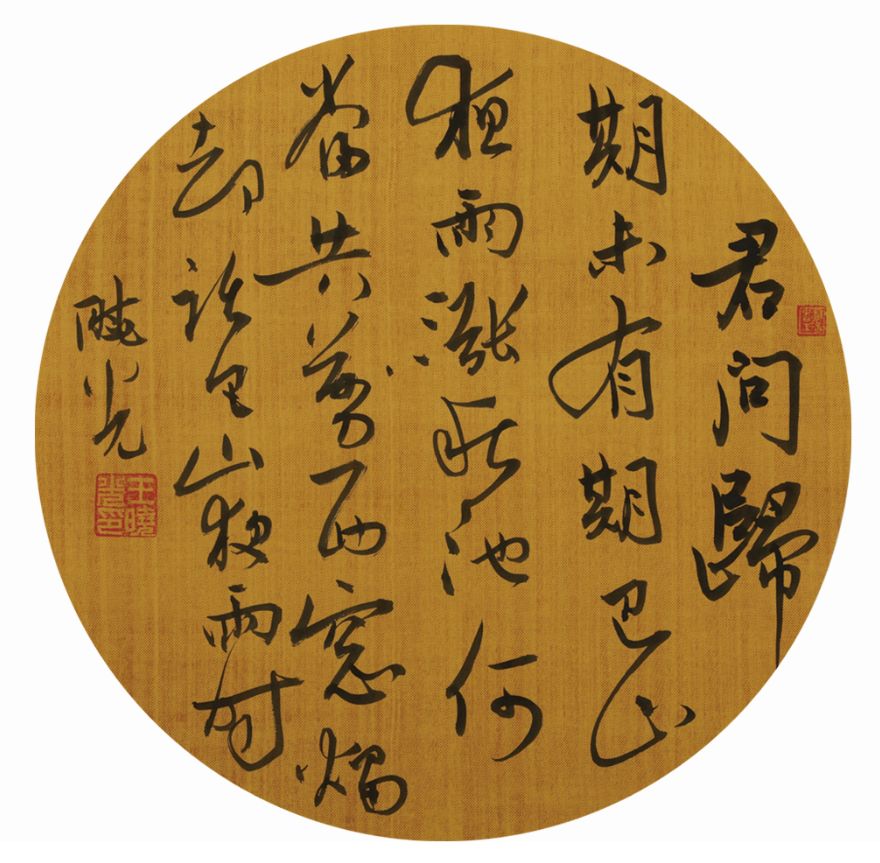 君问歸
期未有期巴山
夜雨漲秋池何
當共剪西窓燭
却話巴山夜雨时
曉光
王曉光印